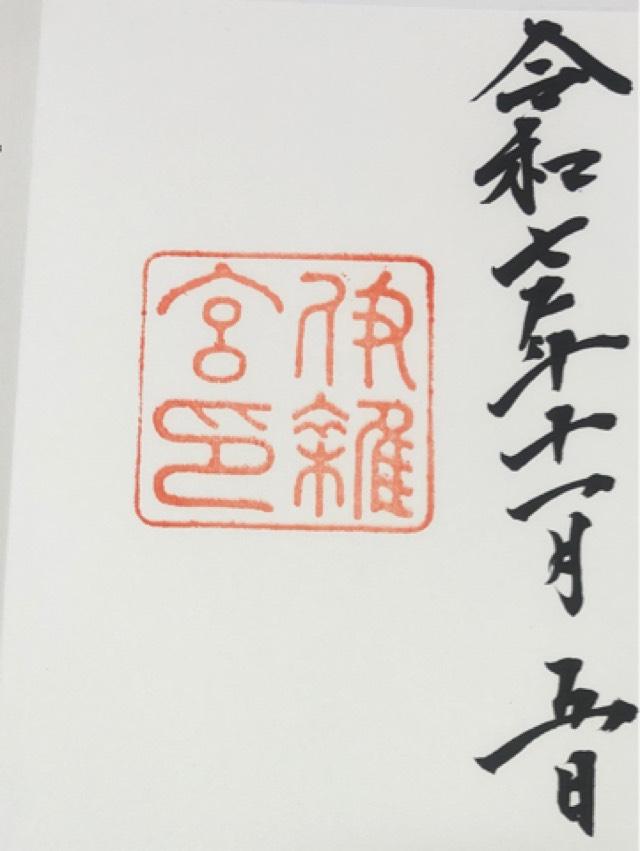 令和七年十一月五日
伊雜
宮印